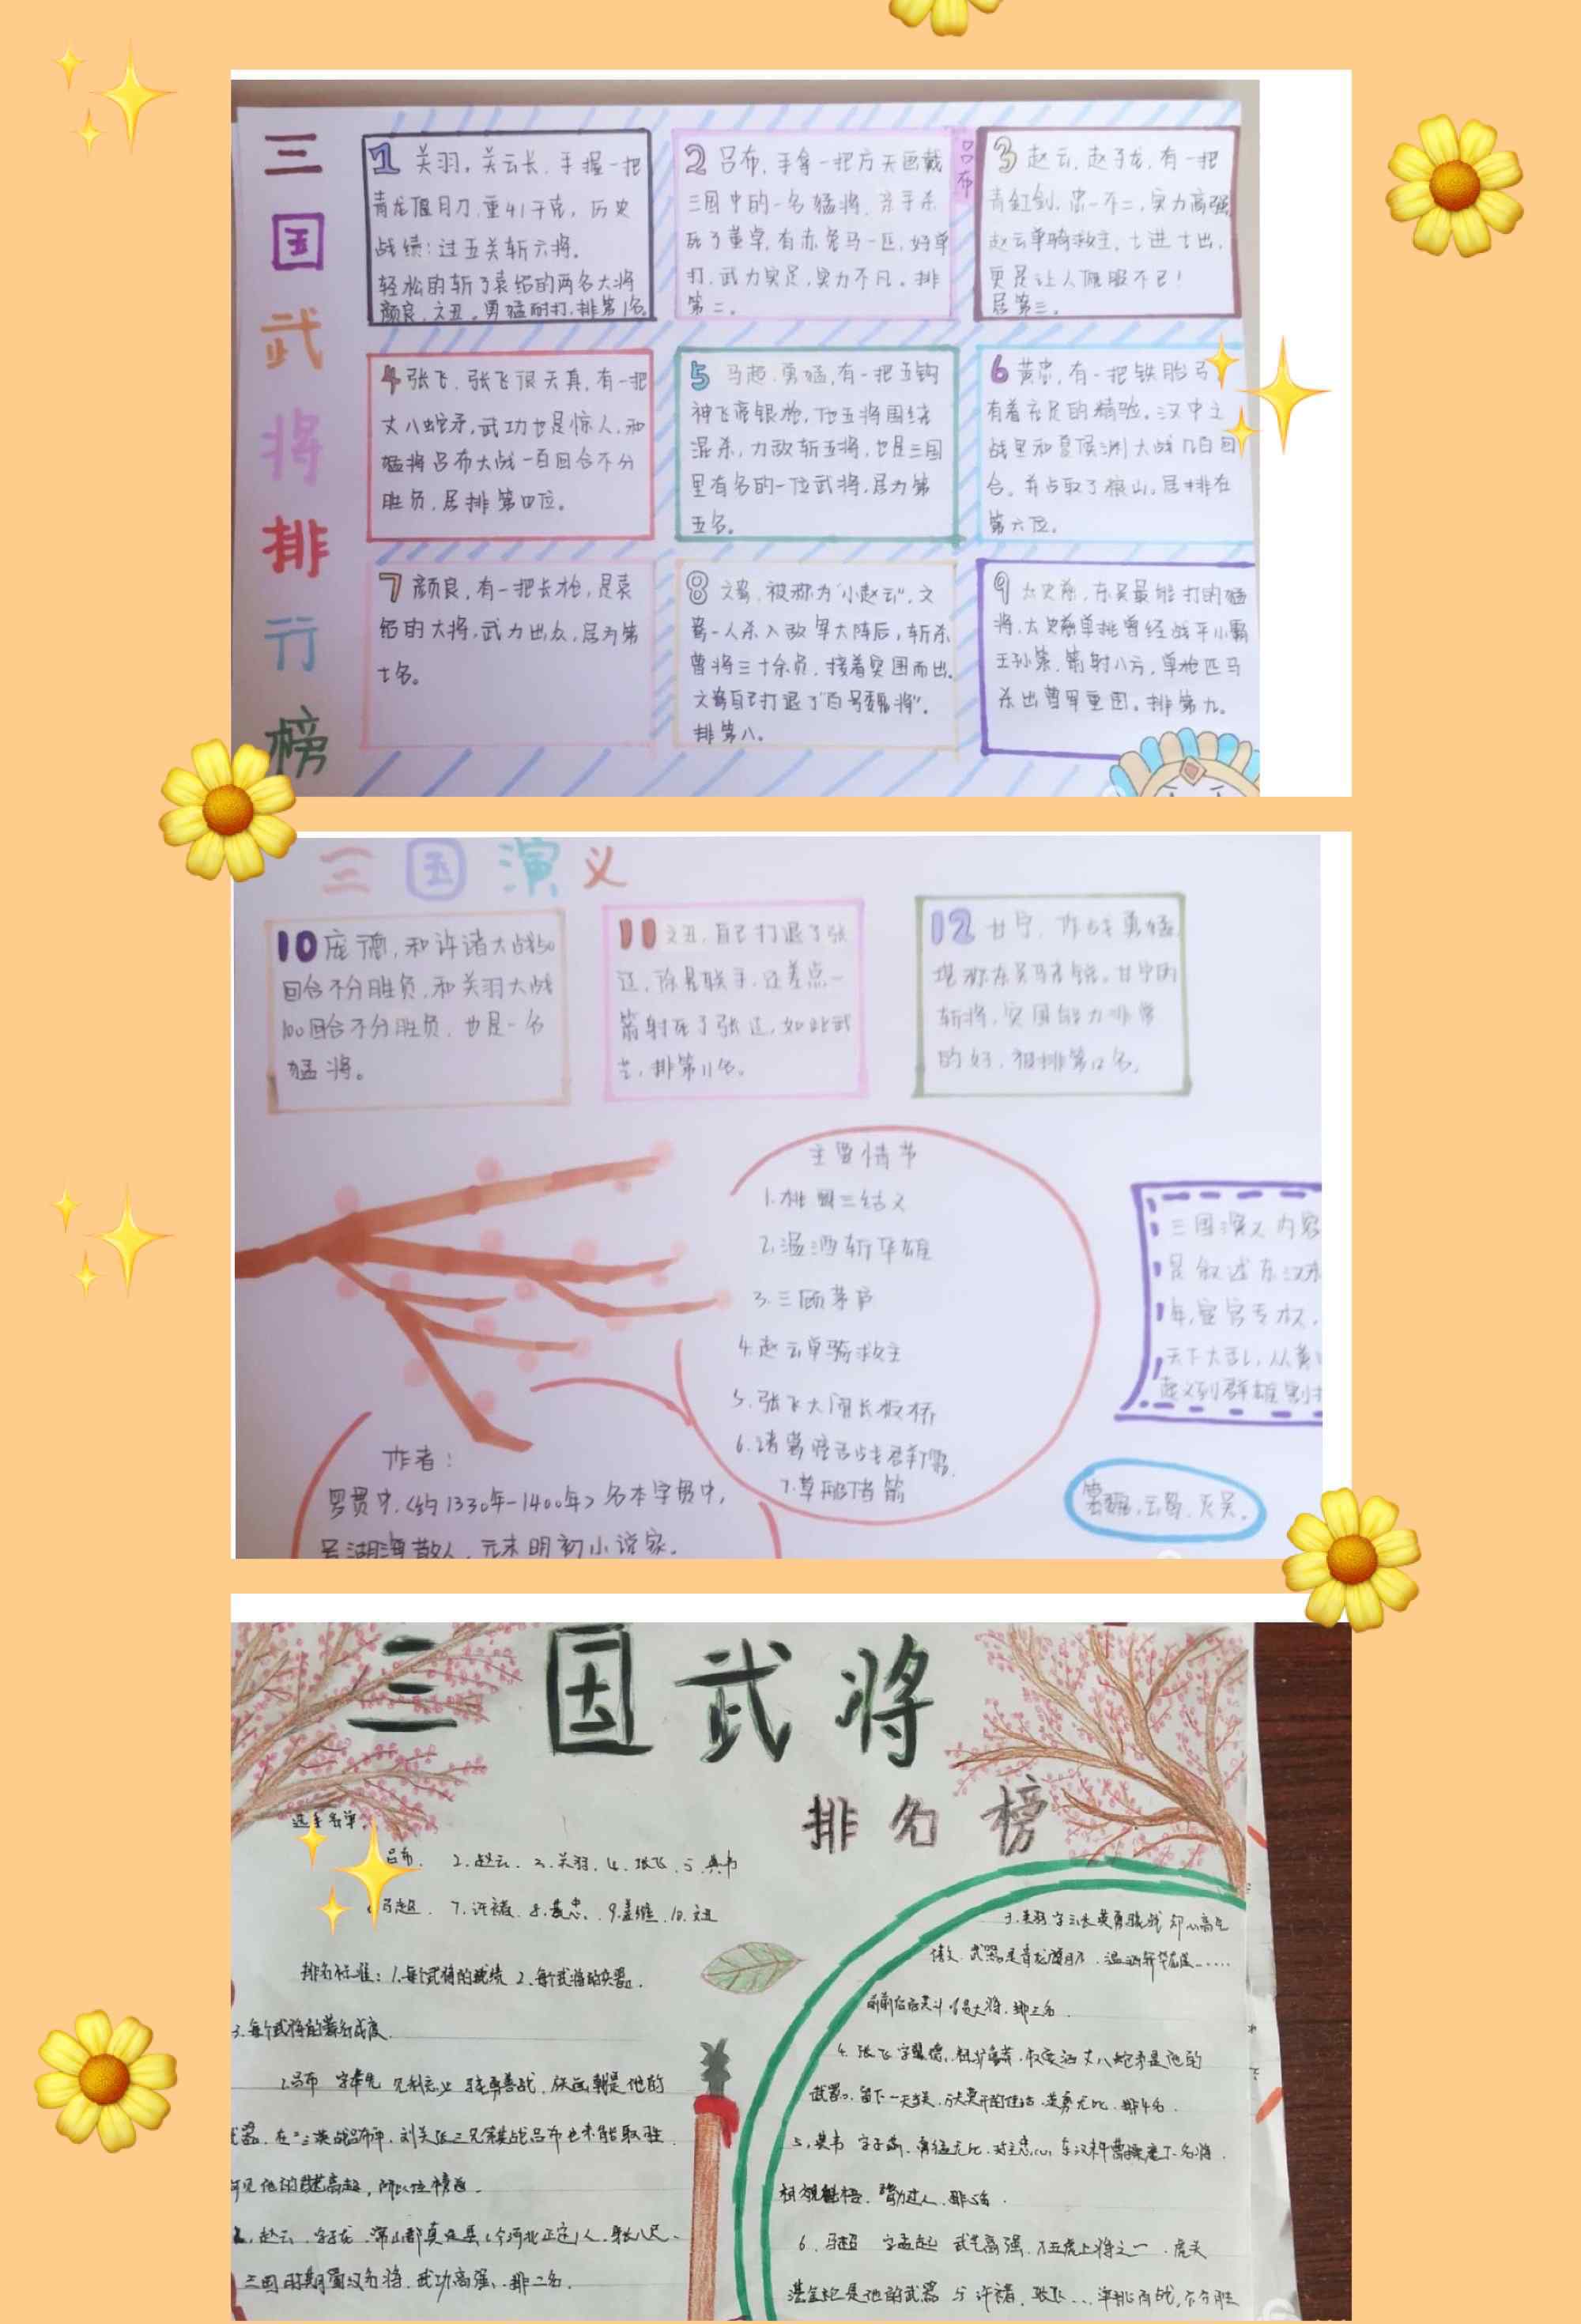 三国武将排行榜
1 关羽,关云长,手握一把
青龙偃月刀,重41千克,历史
战绩:过五关斩六将。
轻松的斩了袁绍的两名大将
颜良,文丑。勇猛耐打,排第1名
2 吕布,手拿一把方天画戟
吕布
三国中的一名猛将,亲手杀
死了董卓,有赤兔马一匹,好单
打,武力实足,实力不凡。排
第二。
3 赵云,赵子龙,有一把
青釭剑,忠一不二,实力高强
赵云单骑救主,七进七出,
更是让人佩服不已!
居第三。
4 张飞,张飞很天真,有一把
丈八蛇矛,武功也是惊人,和
猛将吕布大战一百回合不分
胜负,居排第四位。
5 马超,勇猛,有一把五钩
神飞亮银枪,他五将围绕
混杀,力敌斩五将,也是三国
里有名的一位武将,居为第
五名。
6 黄忠,有一把铁胎弓
有着充足的精验。汉中之
战里和夏侯渊大战几百回
合。并占取了
山。居排在
第六位。
7 颜良,有一把长枪,是袁
绍的大将,武力出众,居为第
七名。
8 文鸯,被称为"小赵云",文
鸯一人杀入敌军大阵后,斩杀
曹将三十余负,接着突围而出。
文鸯自己打退了"百号魏将"。
排第八。
9 太史慈,东吴最能打的猛
将,太史慈单挑曾经战平小霸
王孙策,箭射八方,单枪匹马
杀出曹军重围。排第九。
三国演义
10 庞德,和许诸大战50
回合不分胜负,和关羽大战
100回合不分胜负,也是一名
猛将。
11 文丑,自己打退了张
辽,徐晃联手,还差点一
箭射死了张辽,如此武
艺,排第11名。
12 甘宁,作战勇猛
堪称东吴马前
。甘宁的
斩将,突围能力非常
的好,被排第12名。
主要情节
1.桃园三结义
2.温酒斩华雄
3.三顾茅庐
4.赵云单骑救主
5.张飞大闹长板桥
6.诸葛
舌战群儒
7.草船借箭
三国演义内容
是叙述东汉末
年,宦官专权,
天下大乱,从黄
起义到群雄割
作者:
罗贯中,<约1330年-1400年>名本字贯中,
号湖海散人,元末明初小说家。
云蜀,灭吴。
三国武将
排名榜
选手名单:
吕布. 2.赵云. 3.关羽. 4.张飞. 5.典韦
马超. 7.许褚. 8.黄忠. 9.姜维. 10.文丑
排名标准:1.每个武将的战绩 2.每个武将的
器.
3.每个武将的著名成度.
1.吕布 字奉先 见利忘义 骁勇善战,
画戟是他的
器. 在"三英战吕布中,刘关张三兄弟
战吕布也未能取胜.
可见他的
高超,所以位榜首.
2.赵云 字子龙 常山郡真定县(今河北正定)人,身长八尺.
三国时期蜀汉名将,武功高强,排二名.
3.关羽 字云长 英勇骁战 却心高气
傲. 武器是青龙偃月刀.温酒斩华雄......
前前后后共斩
员大将,排三名.
4.张飞 字翼德,
丈八蛇矛是他的
武器. 留下一
英勇无比. 排4名.
5.典韦
勇猛无比,对主忠心,东汉末年曹操麾下名将.
相貌魁梧. 
过人. 排5名.
6.马超 字孟起 武艺高强. 
五虎上将之一. 虎头
湛金枪是他的武器 与许褚、张飞...单挑
不分胜